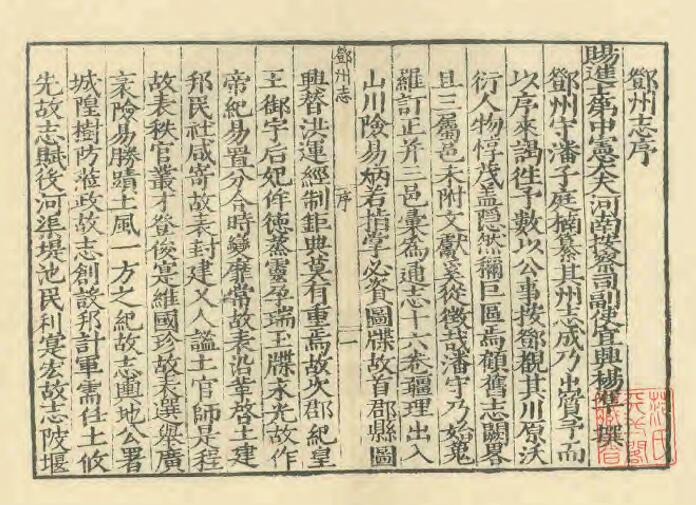 鄧州志序
賜進士第中憲大夫河南按察司副使宜興楊 撰
鄧州守潘子庭楠纂其州志成乃出質予而
以序來謁徃予數以公事按鄧觀其川原沃
衍人物惇茂盖隠然稱巨區焉顧舊志闕畧
且三屬邑未附文獻奚從徵哉潘守乃始蒐
羅訂正并三邑彚為通志十六卷疆理出入
山川險易炳若指掌必資圖牒故首郡縣圖
鄧州志 序 一
興替洪運經制鉅典莫有重焉故次郡紀皇
王御宇后妃侔徳蒸靈孕瑞玉牒末光故作
帝紀易置分合時變靡常故表沿革啓土建
邦民社咸寄故表封建乂人謐土官師是程
故表秩官叢才登俊寔維國珍故表選舉廣
袤險易勝蹟土風一方之紀故志輿地公署
城隍樹防蒞政故志創設邦計軍需任土攸
先故志賦役河渠堤池民利寔宏故志陂堰
范氏天一閣藏書